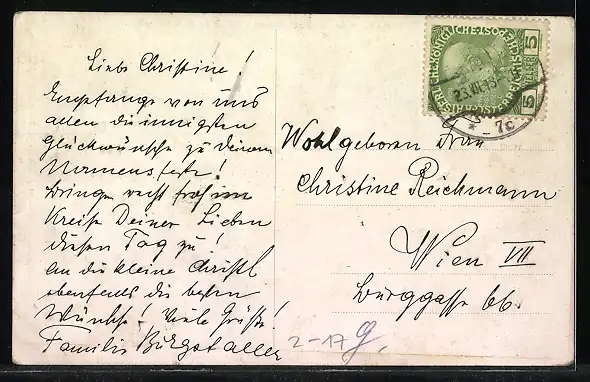 Liebe Christine!
Empfange von uns
allen die innigsten
Glückwünsche zu Deinem
Namensfeste!
Bringe recht froh im
Kreise Deiner Lieben
diesen Tag zu!
An die kleine Christl
ebenfalls die besten
Wünsche! Viele Grüße!
Familie Burgstaller
KAISERLICHE KÖNIGLICHE ÖSTERREICHISCHE POST
5 HELLER 5
23.VII.13
* - 7c
Wohlgeboren Frau
Christine Reichmann
Wien VII
Burggasse 66.
2-17 g.